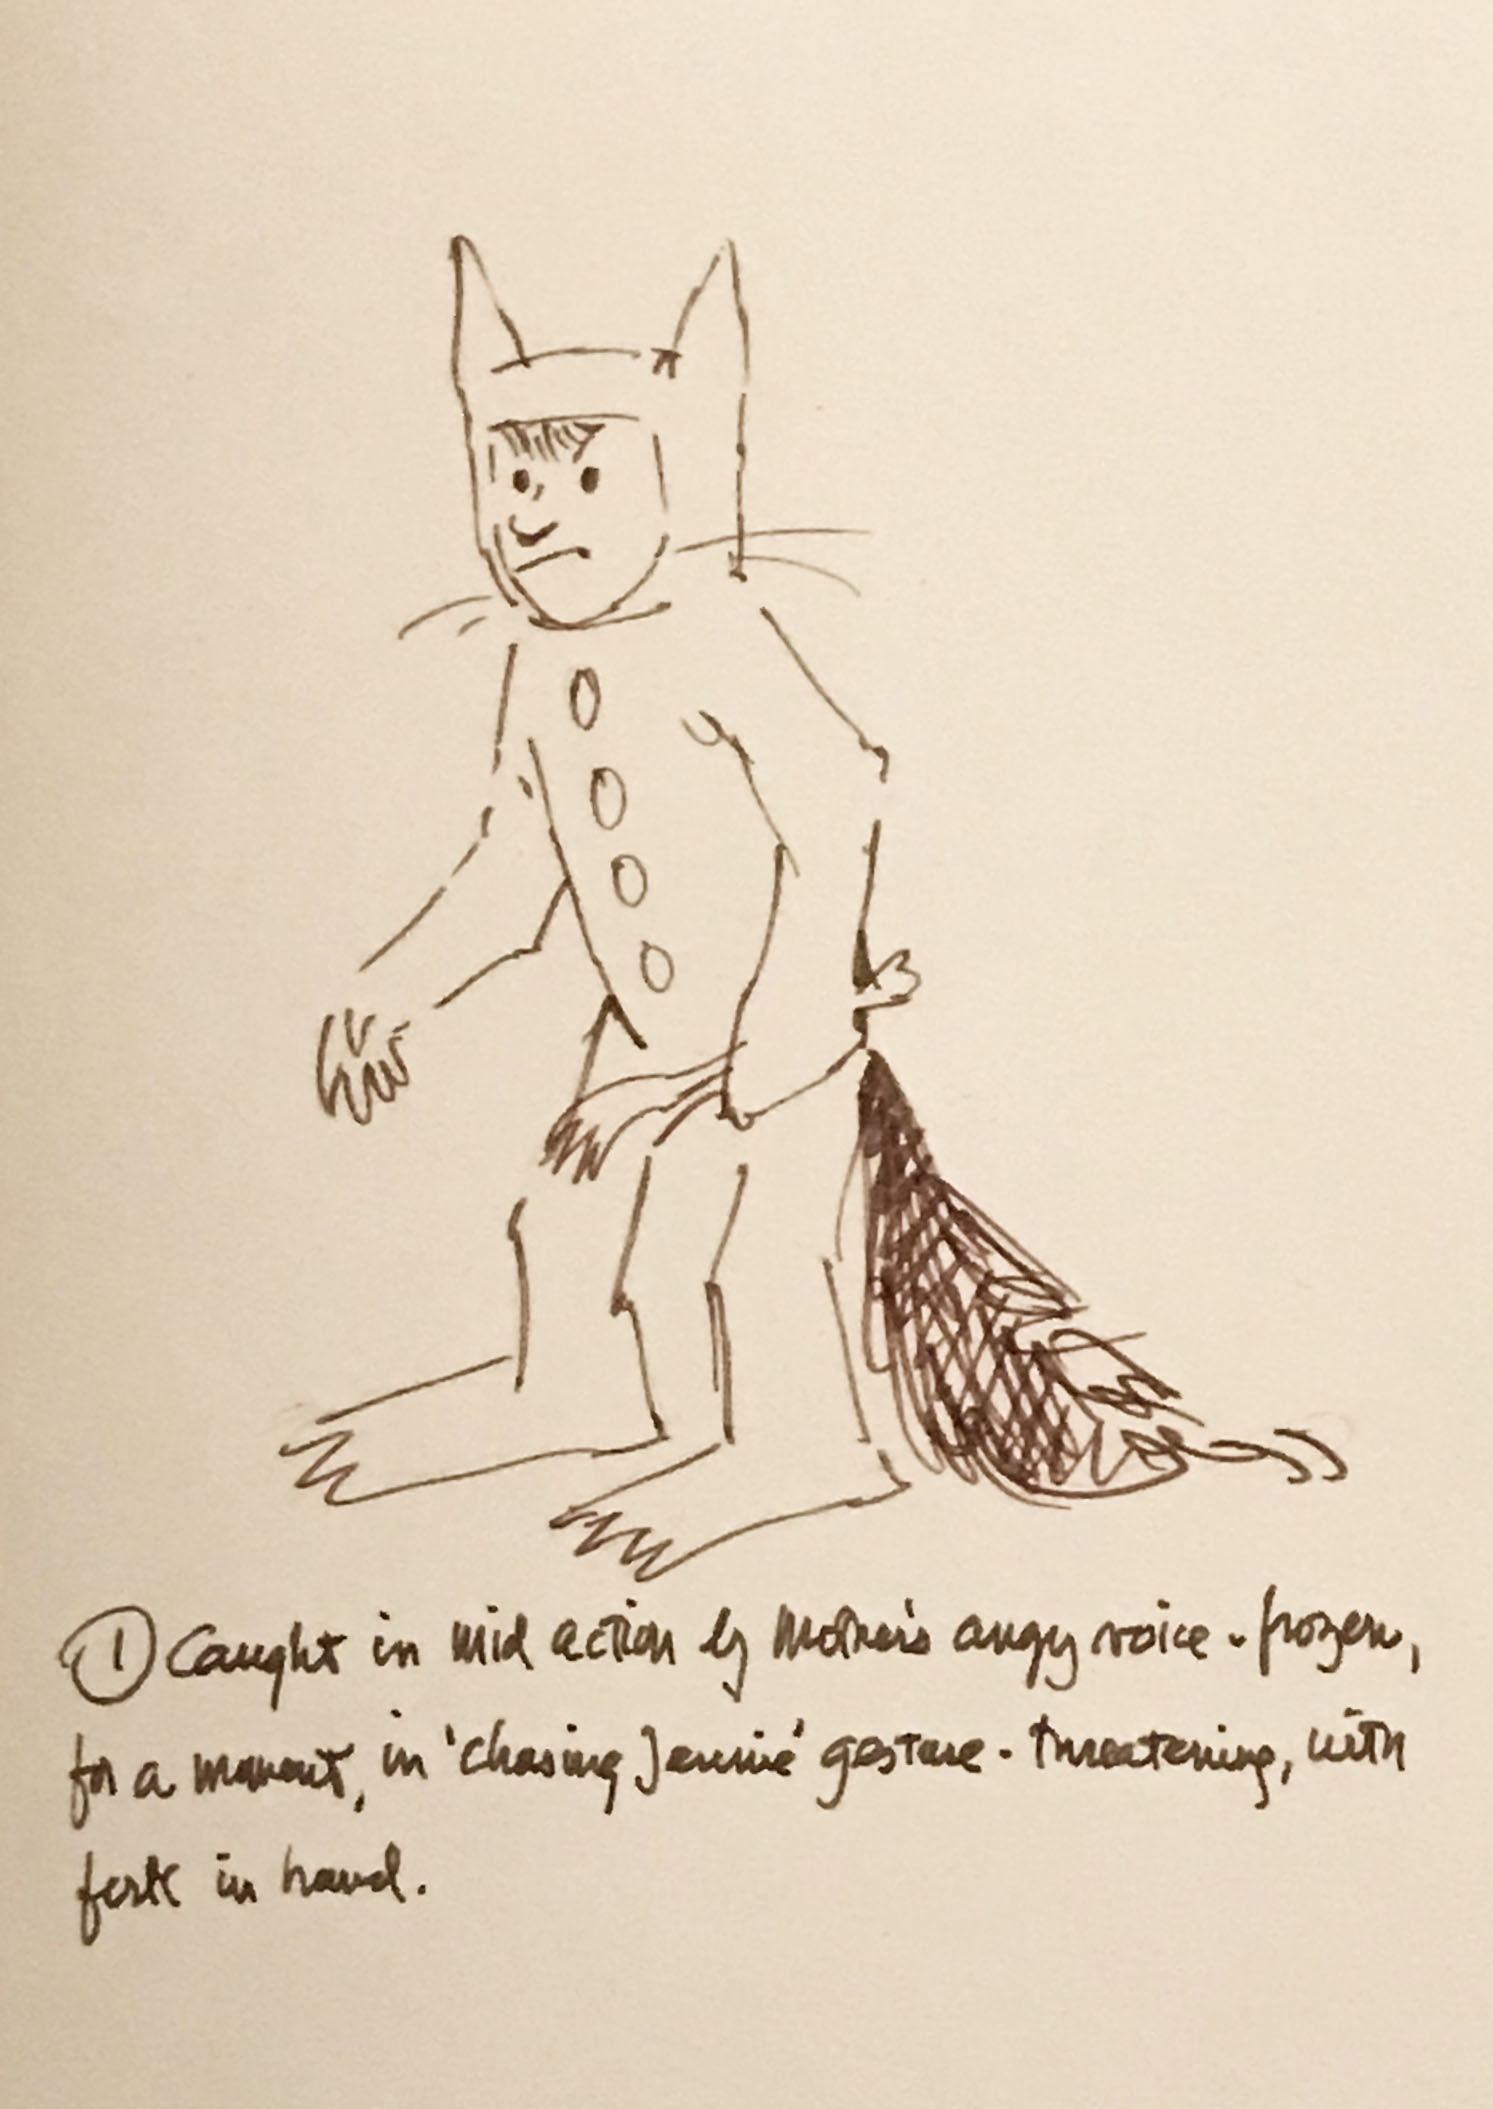 ① Caught in mid action by Mother's angry voice - frozen,
for a moment, in 'chasing Jennie' gesture - threatening, with
fork in hand.